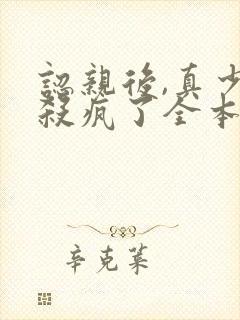 認親後,真少
殺瘋了全本
辛克萊